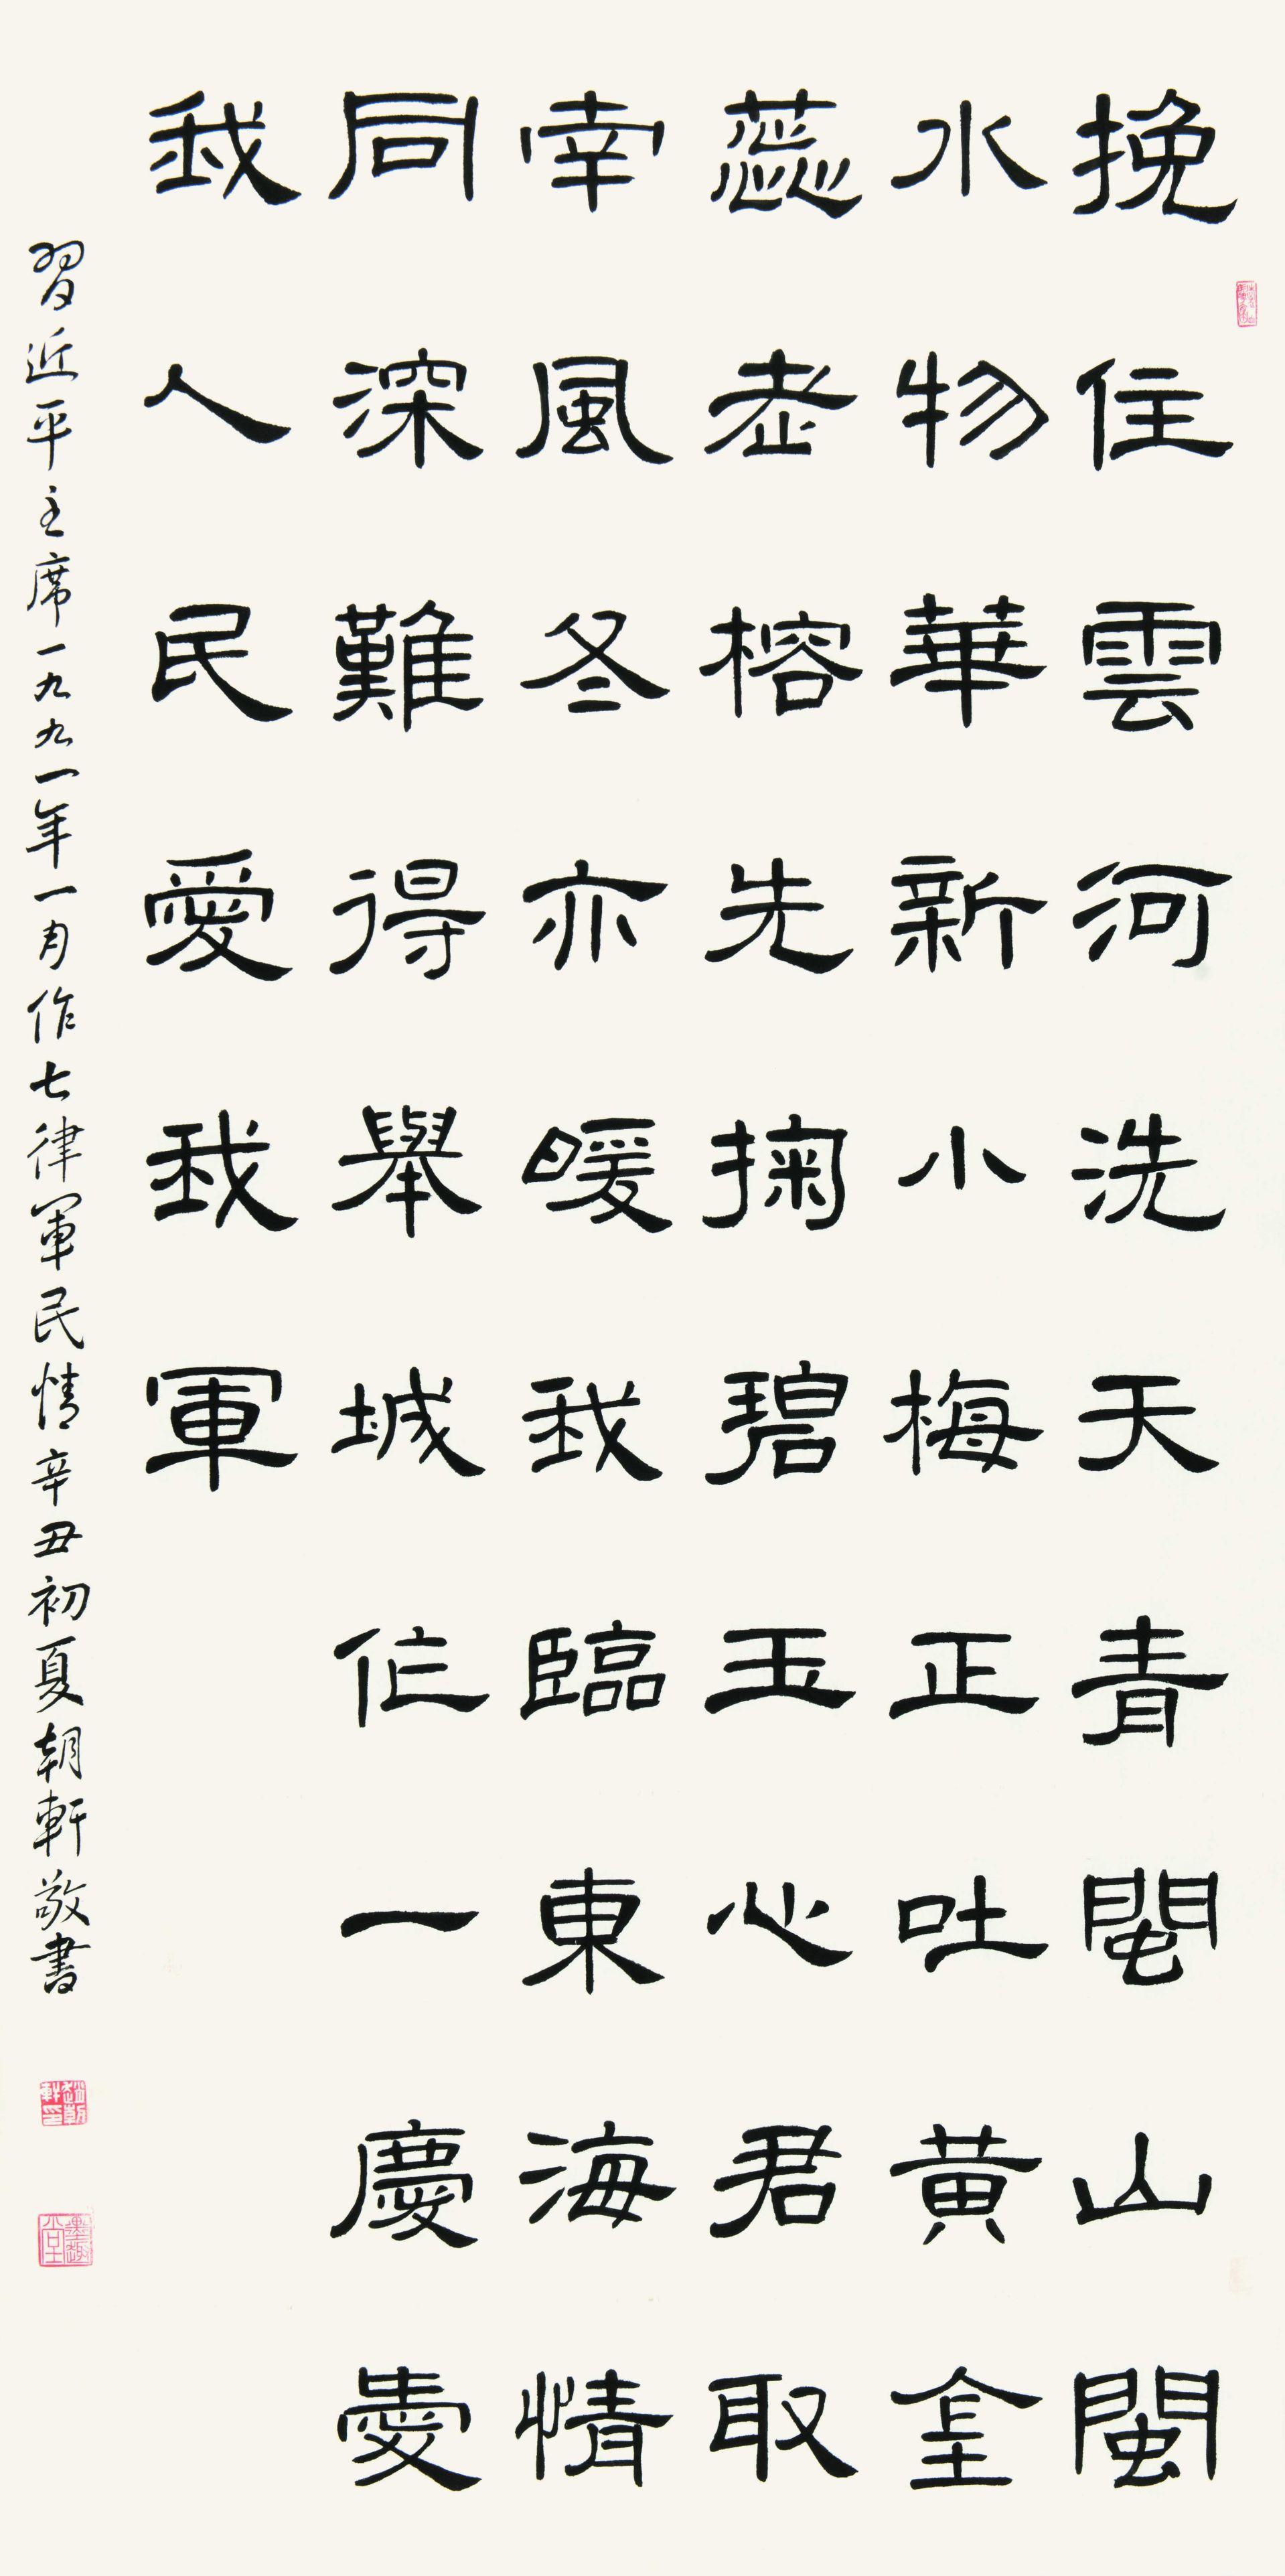 挽住雲河洗天青閩山閩
水物華新小梅正吐黃金
蕊老榕先掬碧玉心君取
南風冬亦暖我臨東海情
同深難得舉城作一慶愛
我人民愛我軍
習近平主席一九九一年一月作七律軍民情辛丑初夏朝軒敬書
趙朝軒印
墨趣堂